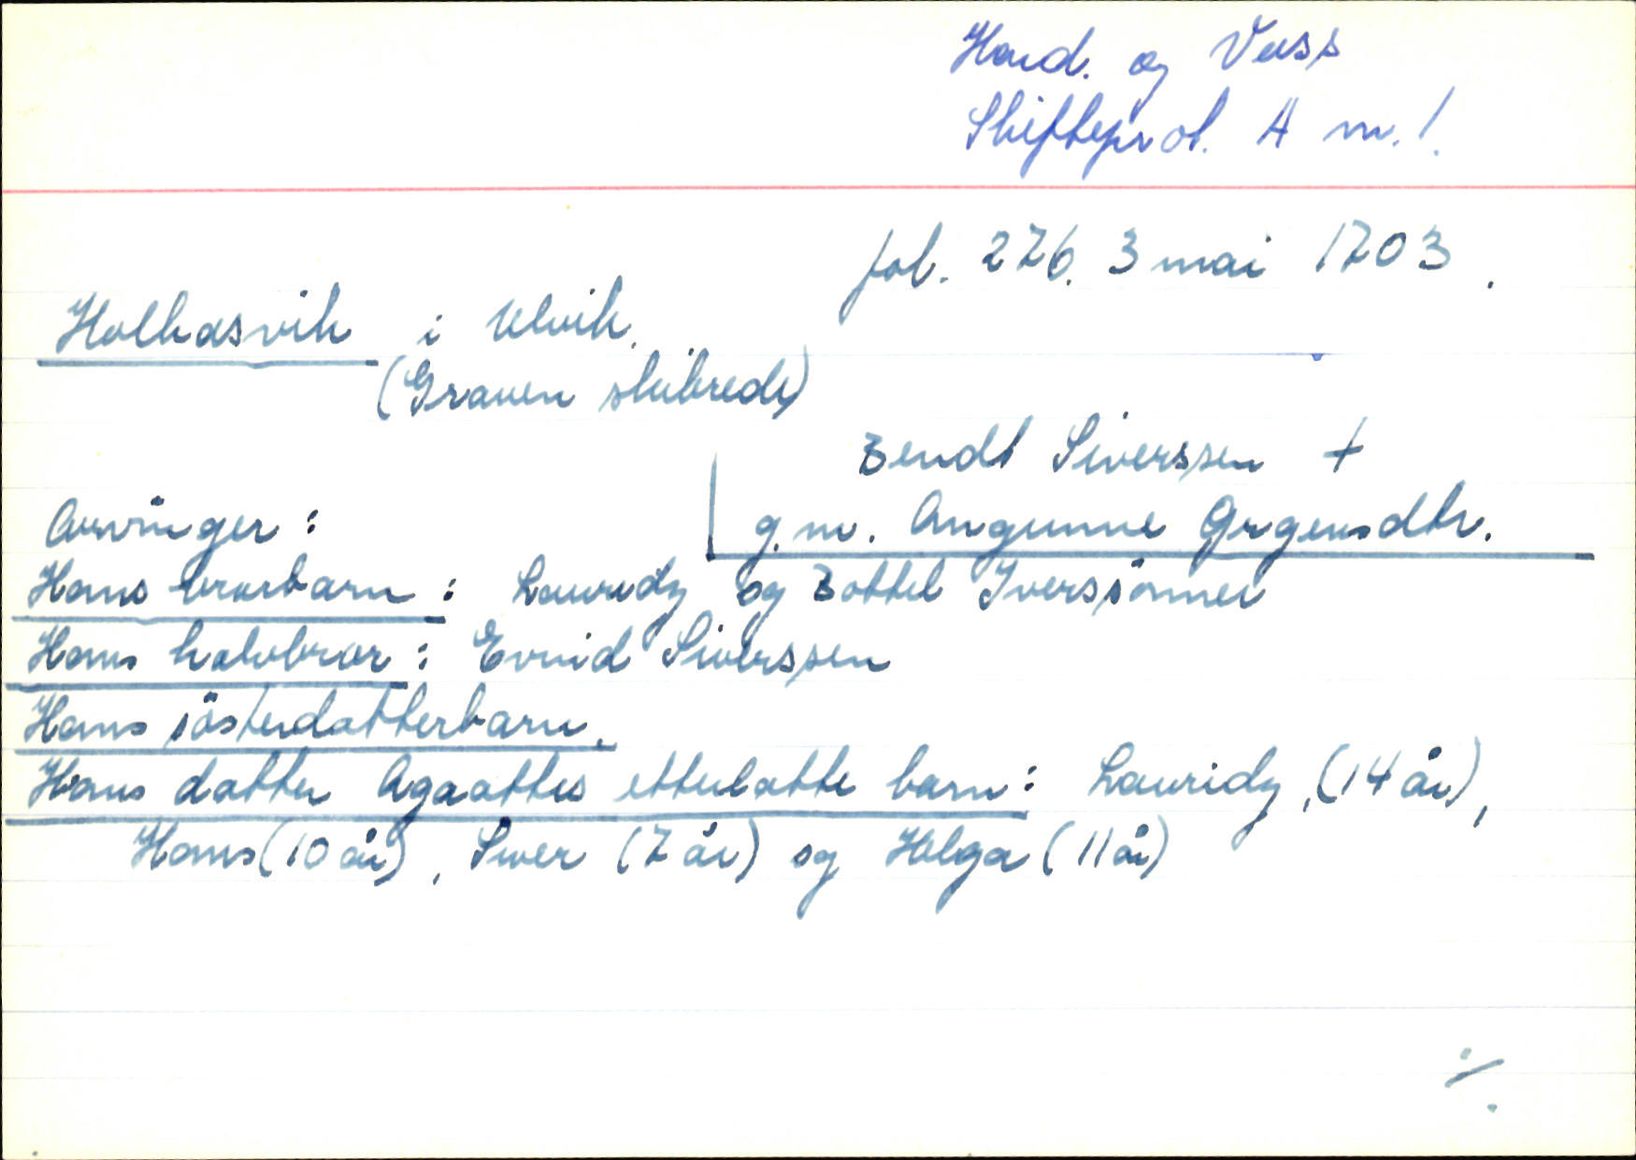 Hard. og Voss
Skifteprot. A nr. 1.
fol. 276. 3 mai 1703.
Holkasvik i Ulvik.
(Graven skibrede)
Bendt Siverssen +
Arvinger:
g.m. Angunne Grgensdtr.
Hans brorbarn: Lauridz og Bottel Iverssönner
Hans halvbror: Evind Siverssen
Hans sösterdatterbarn.
Hans datter Agaattes etterlatte barn: Lauridz, (14 år),
Hans (10 år), Siver (7 år) og Helga (11 år)
./.